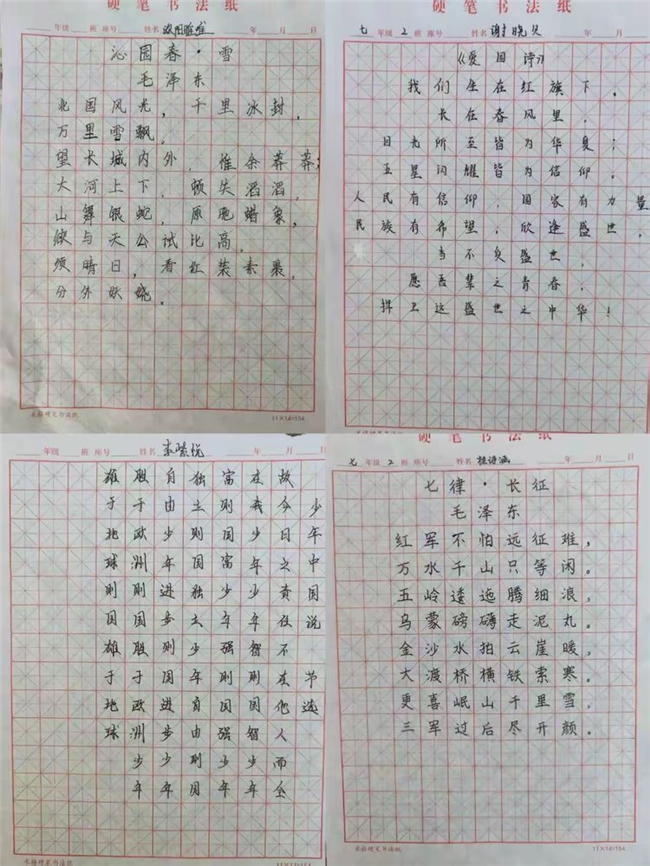 硬笔书法纸
年级 班 座号 姓名 年 月 日
沁园春·雪
毛泽东
北国风光，千里冰封，
万里雪飘。
望长城内外，惟余莽莽；
大河上下，顿失滔滔。
山舞银蛇，原驰蜡象，
欲与天公试比高。
须晴日，看红装素裹，
分外妖娆。
11×14=154
硬笔书法纸
七年级2班 座号 姓名 年 月 日
《爱国诗》
我们坐在红旗下，
长在春风里，
日光所至皆为华夏；
五星闪耀皆为信仰。
人民有信仰，国家有力量
民族有希望，欣逢盛世，
当不负盛世，
愿吾辈之青春，
捍卫这盛世之中华！
年级 班 座号 姓名 年 月 日
少年中国说 节选
故今日之责任不在他人而全
在我少年少年智则国智少年
富则国富少年强则国强少年
独立则国独立少年自由则国
自由少年进步则国进步少年
胜于欧洲则国胜于欧洲少年
雄于地球则国雄于地球
11×14=154
硬笔书法纸
七年级2班 座号 姓名 年 月 日
七律·长征
毛泽东
红军不怕远征难，
万水千山只等闲。
五岭逶迤腾细浪，
乌蒙磅礴走泥丸。
金沙水拍云崖暖，
大渡桥横铁索寒。
更喜岷山千里雪，
三军过后尽开颜。
11×14=154